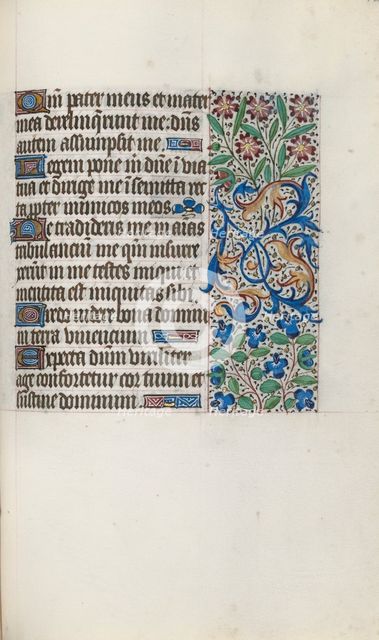 Qm̄ pater meus et mater
mea dereliqrunt me: dn̄s
autem assumpsit me
Legem pone m dn̄e ī via
tua et dirige me ī semitta rec
ta pter inimicos meos
Ne tradideris me in aīas
tribulanciū me qm̄ insurre
xerut in me testes iniqui et
mentita est iniquitas sibi
Credo videre bona domini
in terra viventium
Expecta dūm viriliter
age confortetur cor tuum et
sustine dominum